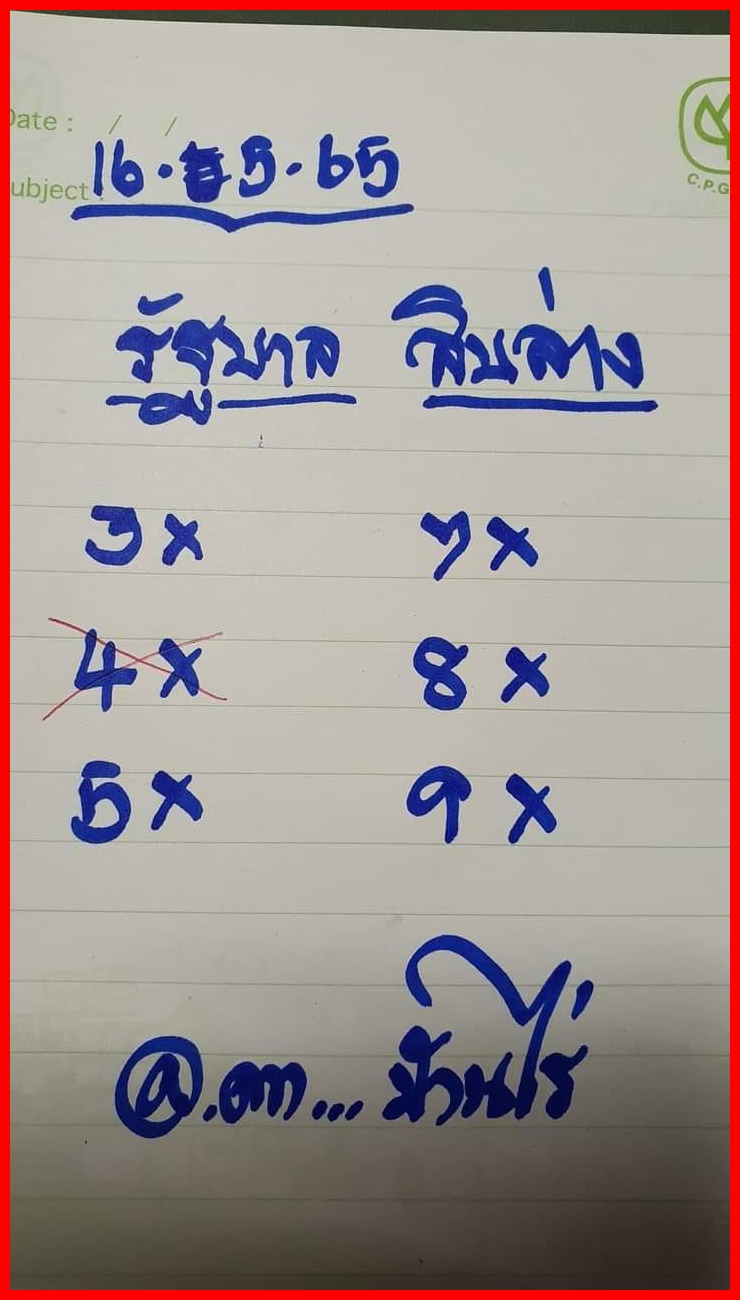 Date : / /
ubject :
16.5.65
รัฐบาล สิบล่าง
3x 7x
4x 8x
5x 9x
C.P.G
... บ้านไร่